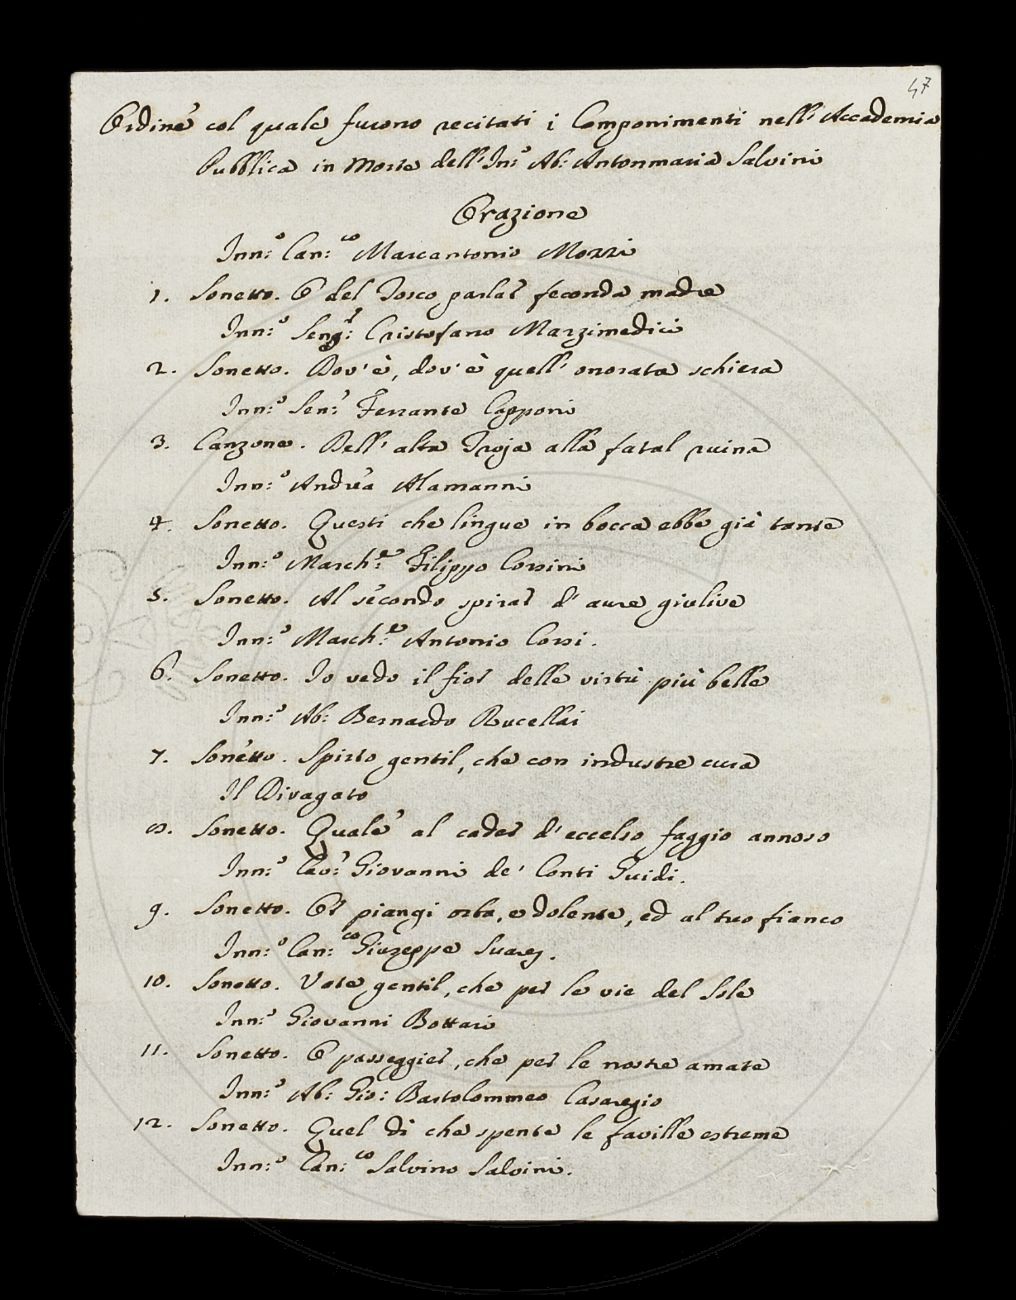 47
Ordine col quale furono recitati i Componimenti nell' Accademia
Pubblica in Morte dell' Inn.º Ab: Antonmaria Salvini
Orazione
Inn:º Can:co Marcantonio Mozzi
1. Sonetto. O del Tosco parlar feconda madre
Inn:º Seng:r Cristofano Marzimedici
2. Sonetto. Dov' è, dov' è quell' onorata schiera
Inn:º Sen:r Ferrante Capponi
3. Canzone. Dell' alta Troja alla fatal ruina
Inn:º Andrea Alamanni
4. Sonetto. Questi che lingue in bocca ebbe già tante
Inn:º March:e Filippo Corsini
5. Sonetto. Al secondo spirar d' aure giulive
Inn:º March:e Antonio Corsi.
6. Sonetto. Io vedo il fior delle virtù più belle
Inn:º Ab: Bernardo Rucellai
7. Sonetto. Spirto gentil, che con industre cura
Il Divagato
8. Sonetto. Quale al cader d' eccelso faggio annoso
Inn:º Cav:r Giovanni de' Conti Guidi.
9. Sonetto. Or piangi orba, e dolente, ed al tuo fianco
Inn:º Can:co Giuseppe Suarez.
10. Sonetto. Vate gentil, che per le vie del Sole
Inn:º Giovanni Bottari
11. Sonetto. O passeggier, che per le nostre amate
Inn:º Ab: Gio: Bartolommeo Casaregio
12. Sonetto. Quel dì che spente le faville estreme
Inn:º Can:co Salvino Salvini.